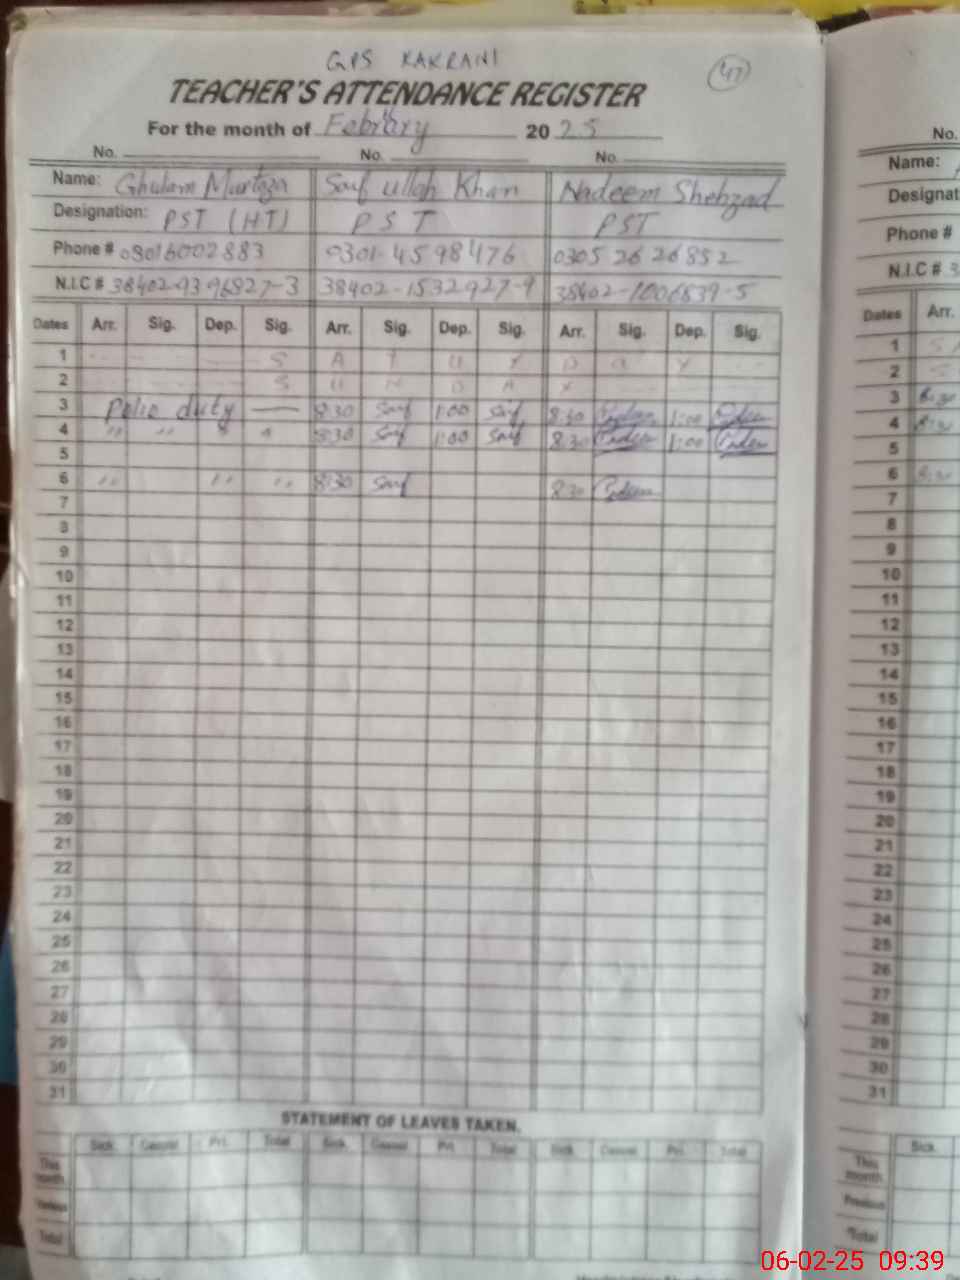 GPS KAKRANI
47
TEACHER'S ATTENDANCE REGISTER
For the month of Februry 2025
No. No. No.
Name: Ghulam Murtaza Saif ullah Khan Nadeem Shehzad
Designation: PST (HT) PST PST
Phone # 03016002883 0301-4598476 0305 26 26852
N.I.C # 38402-9396827-3 38402-1532927-9 38402-1006839-5
Dates Arr. Sig. Dep. Sig. Arr. Sig. Dep. Sig. Arr. Sig. Dep. Sig.
1 S A T U R D A Y
2 S U N D A Y
3 Polio duty — 8:30 Saif 1:00 Saif 8:30 1:00
4 " " " " 8:30 Saif 1:00 Saif 8:30 1:00
5
6 " " " 8:30 Saif 8:30
7
8
9
10
11
12
13
14
15
16
17
18
19
20
21
22
23
24
25
26
27
28
29
30
31
STATEMENT OF LEAVES TAKEN.
Sick. Casual Pri. Total Sick. Casual Pri. Total Sick. Casual Pri. Total
This month
Previous
Total
No.
Name:
Designat
Phone #
N.I.C # 3
Dates Arr.
1 S
2 S
3 8:30
4 8:30
5
6 8:30
7
8
9
10
11
12
13
14
15
16
17
18
19
20
21
22
23
24
25
26
27
28
29
30
31
Sick.
This month
Previous
Total
06-02-25 09:39